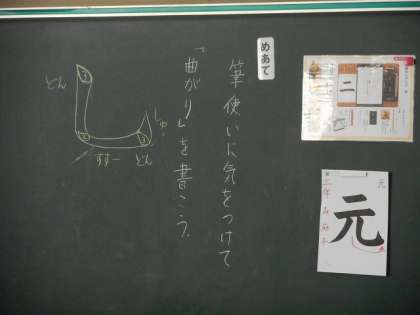 めあて
筆使いに気をつけて
「曲がり」を書こう。
とん
すすー
とん
しゅっ
二
元
元
三年